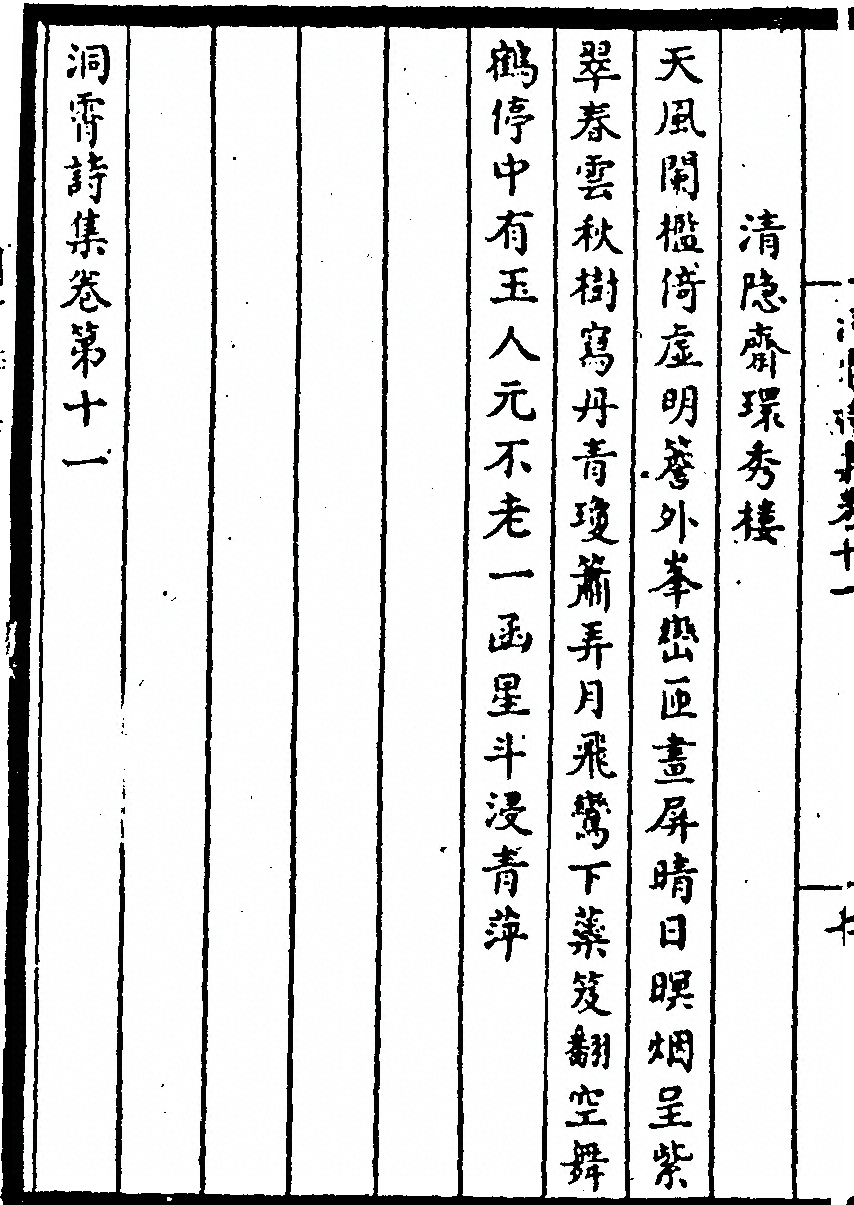 清隐齋環秀樓
天風闌檻倚虛明簷外峯巒匝畫屏晴日暝烟呈紫
翠春雲秋樹寫丹青瓊簫弄月飛鸞下蘂笈翻空舞
鶴停中有玉人元不老一函星斗浸青萍
洞霄詩集卷第十一